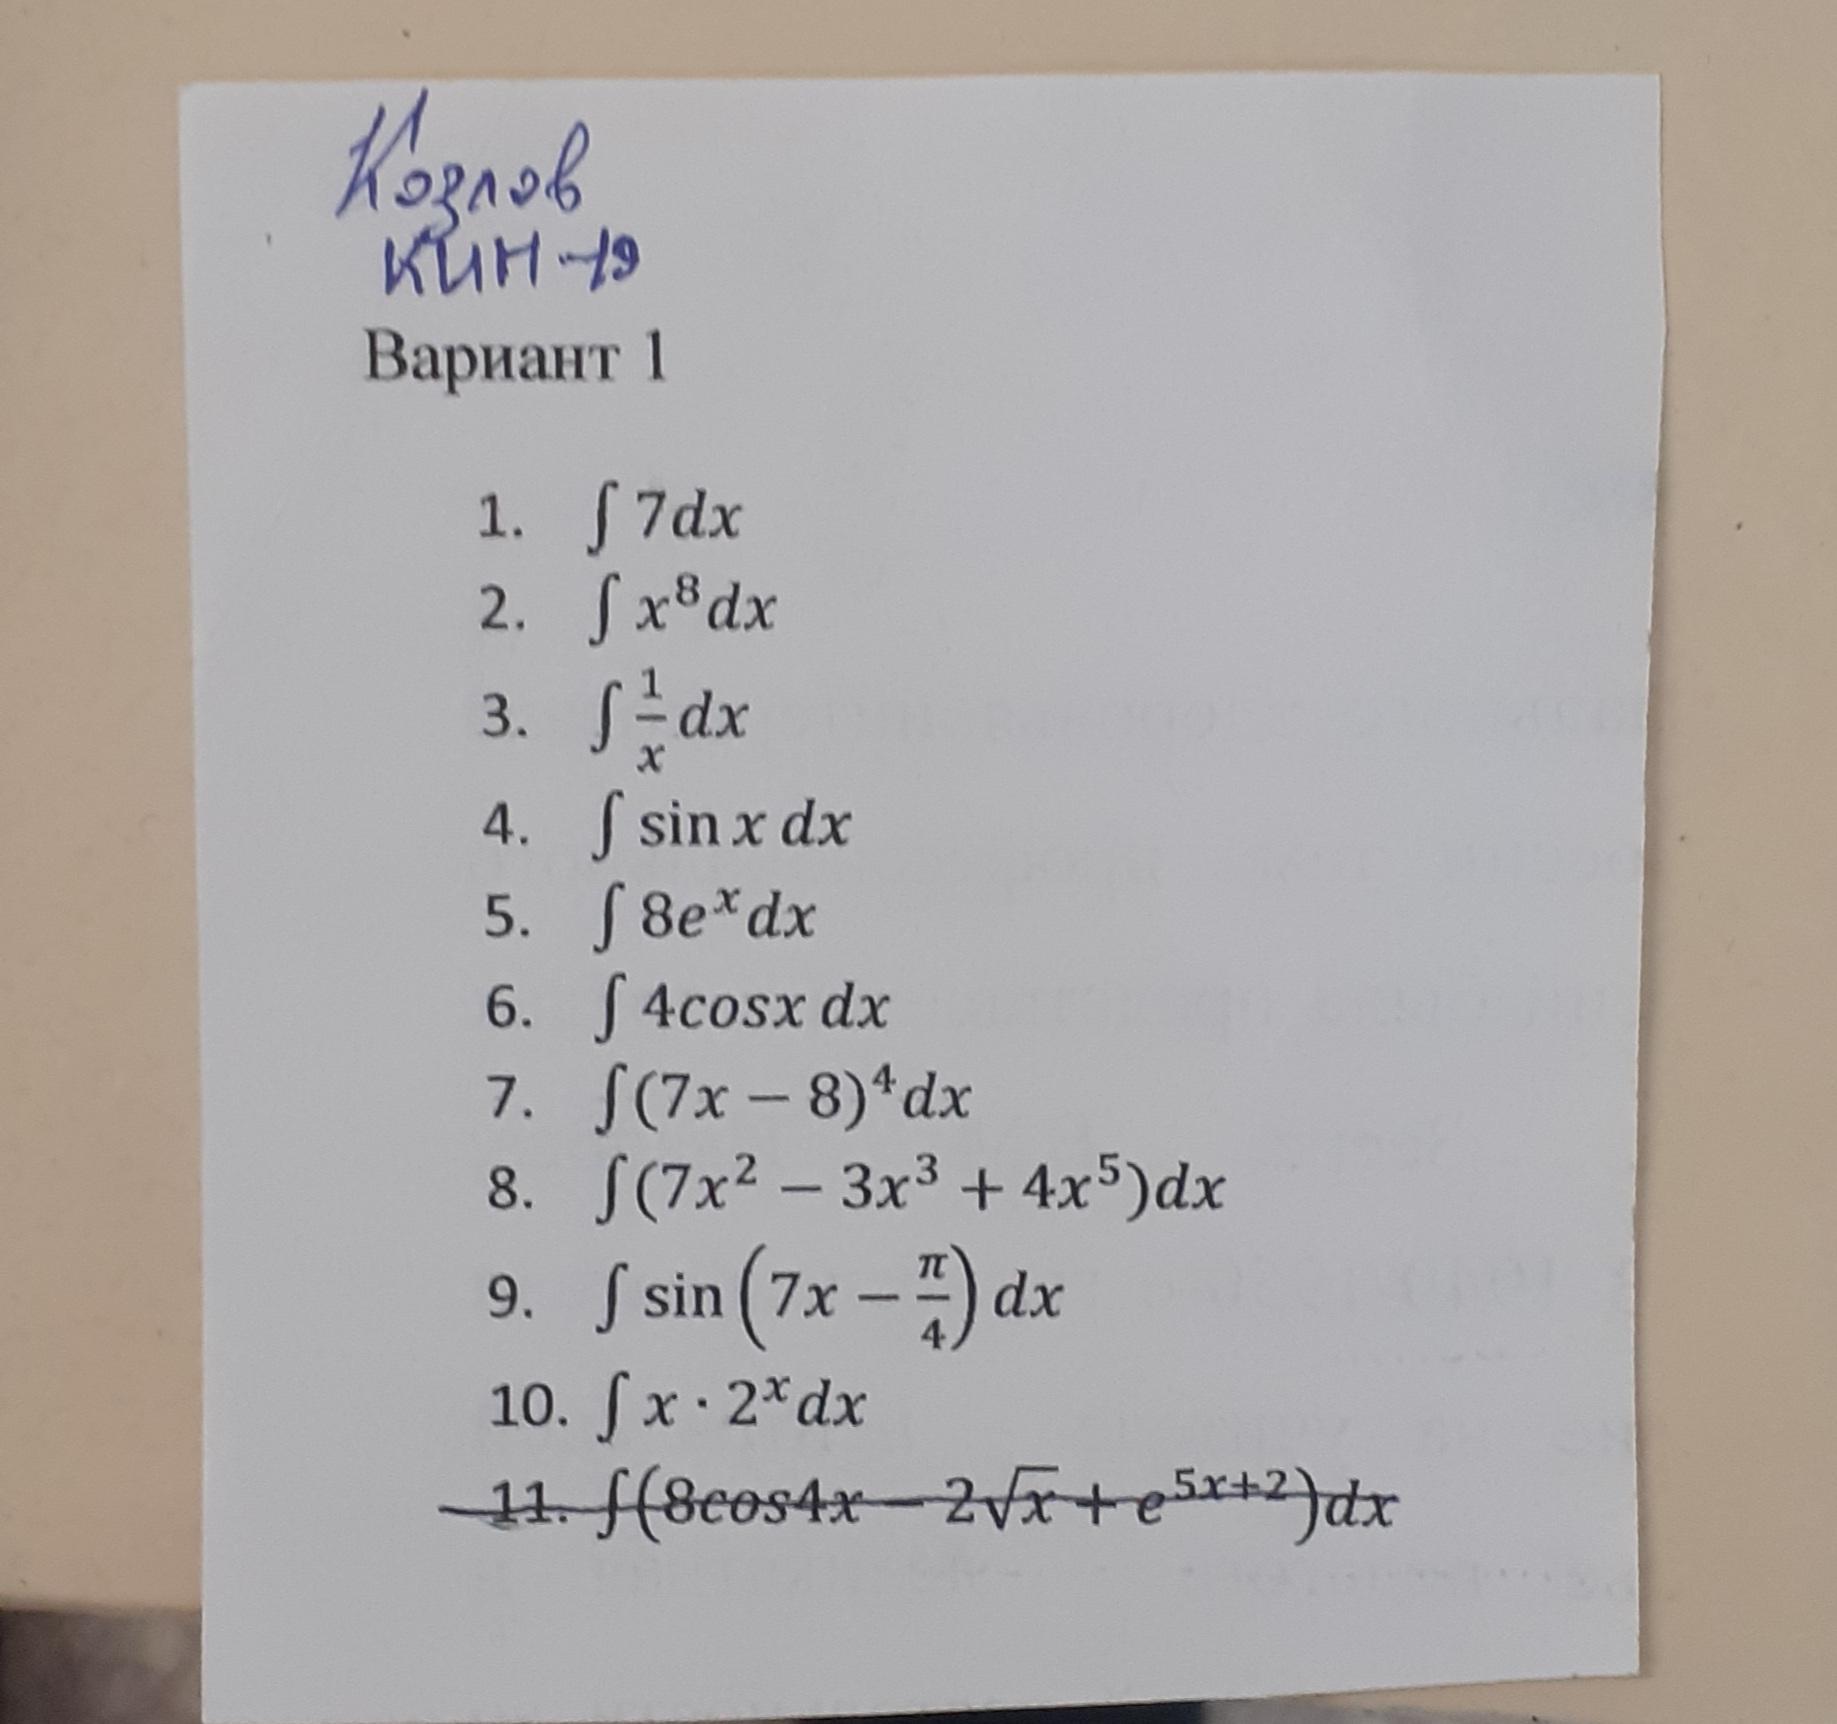 Козлов
КИН-19
Вариант 1
1. ∫ 7dx
2. ∫ x⁸dx
3. ∫ 1/x dx
4. ∫ sin x dx
5. ∫ 8eˣdx
6. ∫ 4cosx dx
7. ∫(7x − 8)⁴dx
8. ∫(7x² − 3x³ + 4x⁵)dx
9. ∫ sin(7x − π/4) dx
10. ∫ x · 2ˣdx
11. ∫(8cos4x − 2√x + e⁵ˣ⁺²)dx